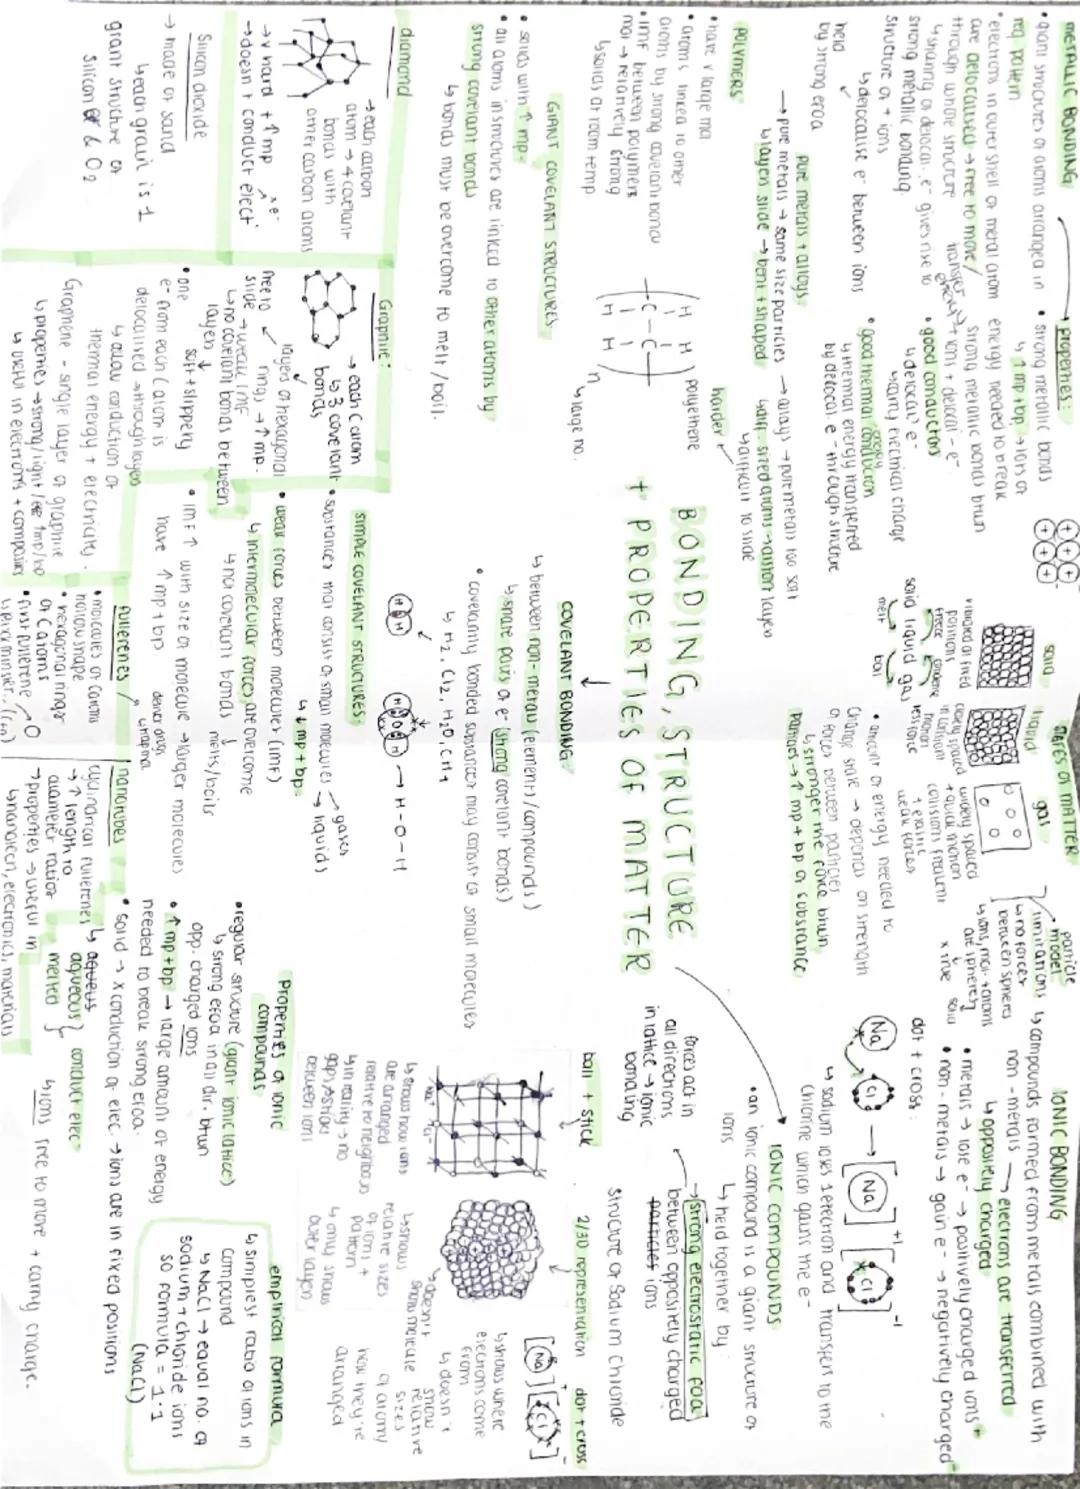 METALLIC BONDING
• giant structures of atoms arranged in
reg pattern
• electrons in outer shell of metal atom
are delocalised → free to move /
through whole structure
↳ sharing of delocal. e⁻ gives rise to
strong metallic bonding
structure of + ions
↳ delocalise e⁻ between ions
held
by strong efoa
Properties:
• strong metallic bonds
↳ ↑ mp + bp → lots of
energy needed to break
strong metallic bonds btwn
+ ions + delocal - e⁻
transfer energy
• good conductors
↳ delocal e⁻
carry electrical charge
• good thermal conduction
energy
↳ thermal energy transferred
by delocal. e⁻ through structure
pure metals + alloys
→ pure metals → same size particles
↳ layers slide → bent + shaped
→ alloys → pure metals too soft
↳ diff. sized atoms → distort layers
↳ difficult to slide
harder
POLYMERS
• have v large mol.
• atoms linked to other
atoms by strong covalent bonds
• IMF between polymers
mol → relatively strong
↳ solids at room temp.
H H
C - C
H H
n
polyethene
↳ large no.
GIANT COVELANT STRUCTURES
• solids with ↑ mp.
• all atoms in structures are linked to other atoms by
strong covelant bonds
↳ bonds must be overcome to melt / boil.
diamond
→ each carbon
atom → 4 covelant
bonds with
other carbon atoms
→ v hard + ↑ mp
→ doesn't conduct elect
x e⁻
Silicon dioxide
→ made of sand
↳ each grain is 1
giant structure of
silicon & O2
Graphite:
→ each C atom
↳ 3 covelant
bonds
layers of hexagonal
rings → ↑ mp.
free to
slide → weak IMF
↳ no covelant bonds between
layers
soft + slippery
• one
e⁻ from each C atom is
delocalised → through layers
↳ allow conduction of
thermal energy + electricity.
Graphene - single layer of graphite
↳ properties → strong / light / ↑mp / no
↳ useful in electronics + composites
BONDING, STRUCTURE
+ PROPERTIES OF MATTER
COVELANT BONDING
↳ between non-metals (elements / compounds)
↳ share pairs of e⁻ (strong covelant bonds)
• covelantly bonded substances may consist of small molecules
↳ H2, Cl2, H2O, CH4
H H
H O H → H - O - H
SIMPLE COVELANT STRUCTURES
• substances that consists of small molecules → gases
→ liquids
• weak forces between molecules (IMF)
↳ ↓ mp + bp
↳ intermolecular forces are overcome
↳ not covelant bonds
melts / boils
• IMF ↑ with size of molecule → larger molecules
have ↑ mp + bp
fullerenes
• molecules of carbon
hollow shape
• hexagonal rings
of C atoms
• first fullerene
deliver drugs
nanotubes
cylindrical fullerenes
→ ↑ length to
diameter ratios
→ properties → useful in
↳ nanotech, electronics, materials
STATES OF MATTER
solid
liquid
gas
vibrate at fixed
position
closely spaced
in constant
motion
less force
widely spaced
+ quick motion
collisions frequent
+ elastic
weak forces
freeze condense
solid liquid gas
melt boil
• amount of energy needed to
change state → depends on strength
of forces between particles
↳ stronger the force btwn
particles → ↑ mp + bp of substance
particle
model
limitations
↳ no forces
between spheres
↳ ions, mol. + atoms
are spheres
x true solid
IONIC BONDING
↳ compounds formed from metals combined with
non - metals → electrons are transferred
↳ oppositely charged
• metals → lose e⁻ → positively charged ions +
• non - metals → gain e⁻ → negatively charged⁻
dot + cross:
Na Cl → [Na]+1 [Cl]-1
↳ sodium loses 1 electron and transfers to the
chlorine which gains the e⁻
IONIC COMPOUNDS
• an ionic compound is a giant structure of
ions
↳ held together by
→ strong electrostatic foa
between oppositely charged
particles ions
forces act in
all directions
in lattice → ionic
bonding
structure of sodium chloride
ball + stick
↳ shows how ions
are arranged
relative to neighbours
↳ in reality → no
gaps/sticks
between ions
2/3D representation
↳ shows
relative sizes
of ions +
pattern
↳ only shows
outer layer
dot + cross
[Na]+ [Cl]-
↳ shows where
electrons come
from
↳ doesn't
show
relative
sizes
of atoms
how they're
arranged
→ doesn't
show molecule
Properties of ionic
compounds
• regular structure (giant ionic lattice)
↳ strong efoa in all dir. btwn
opp. charged ions
• ↑ mp + bp → large amount of energy
needed to break strong efoa.
• solid → x conduction of elec. → ions are in fixed positions
↳ aqueous
aqueous } conduct elec
melted }
↳ ions free to move + carry charge.
empirical formula
↳ simplest ratio of ions in
compound
↳ NaCl → equal no. of
sodium + chloride ions
so formula = 1:1
(NaCl)